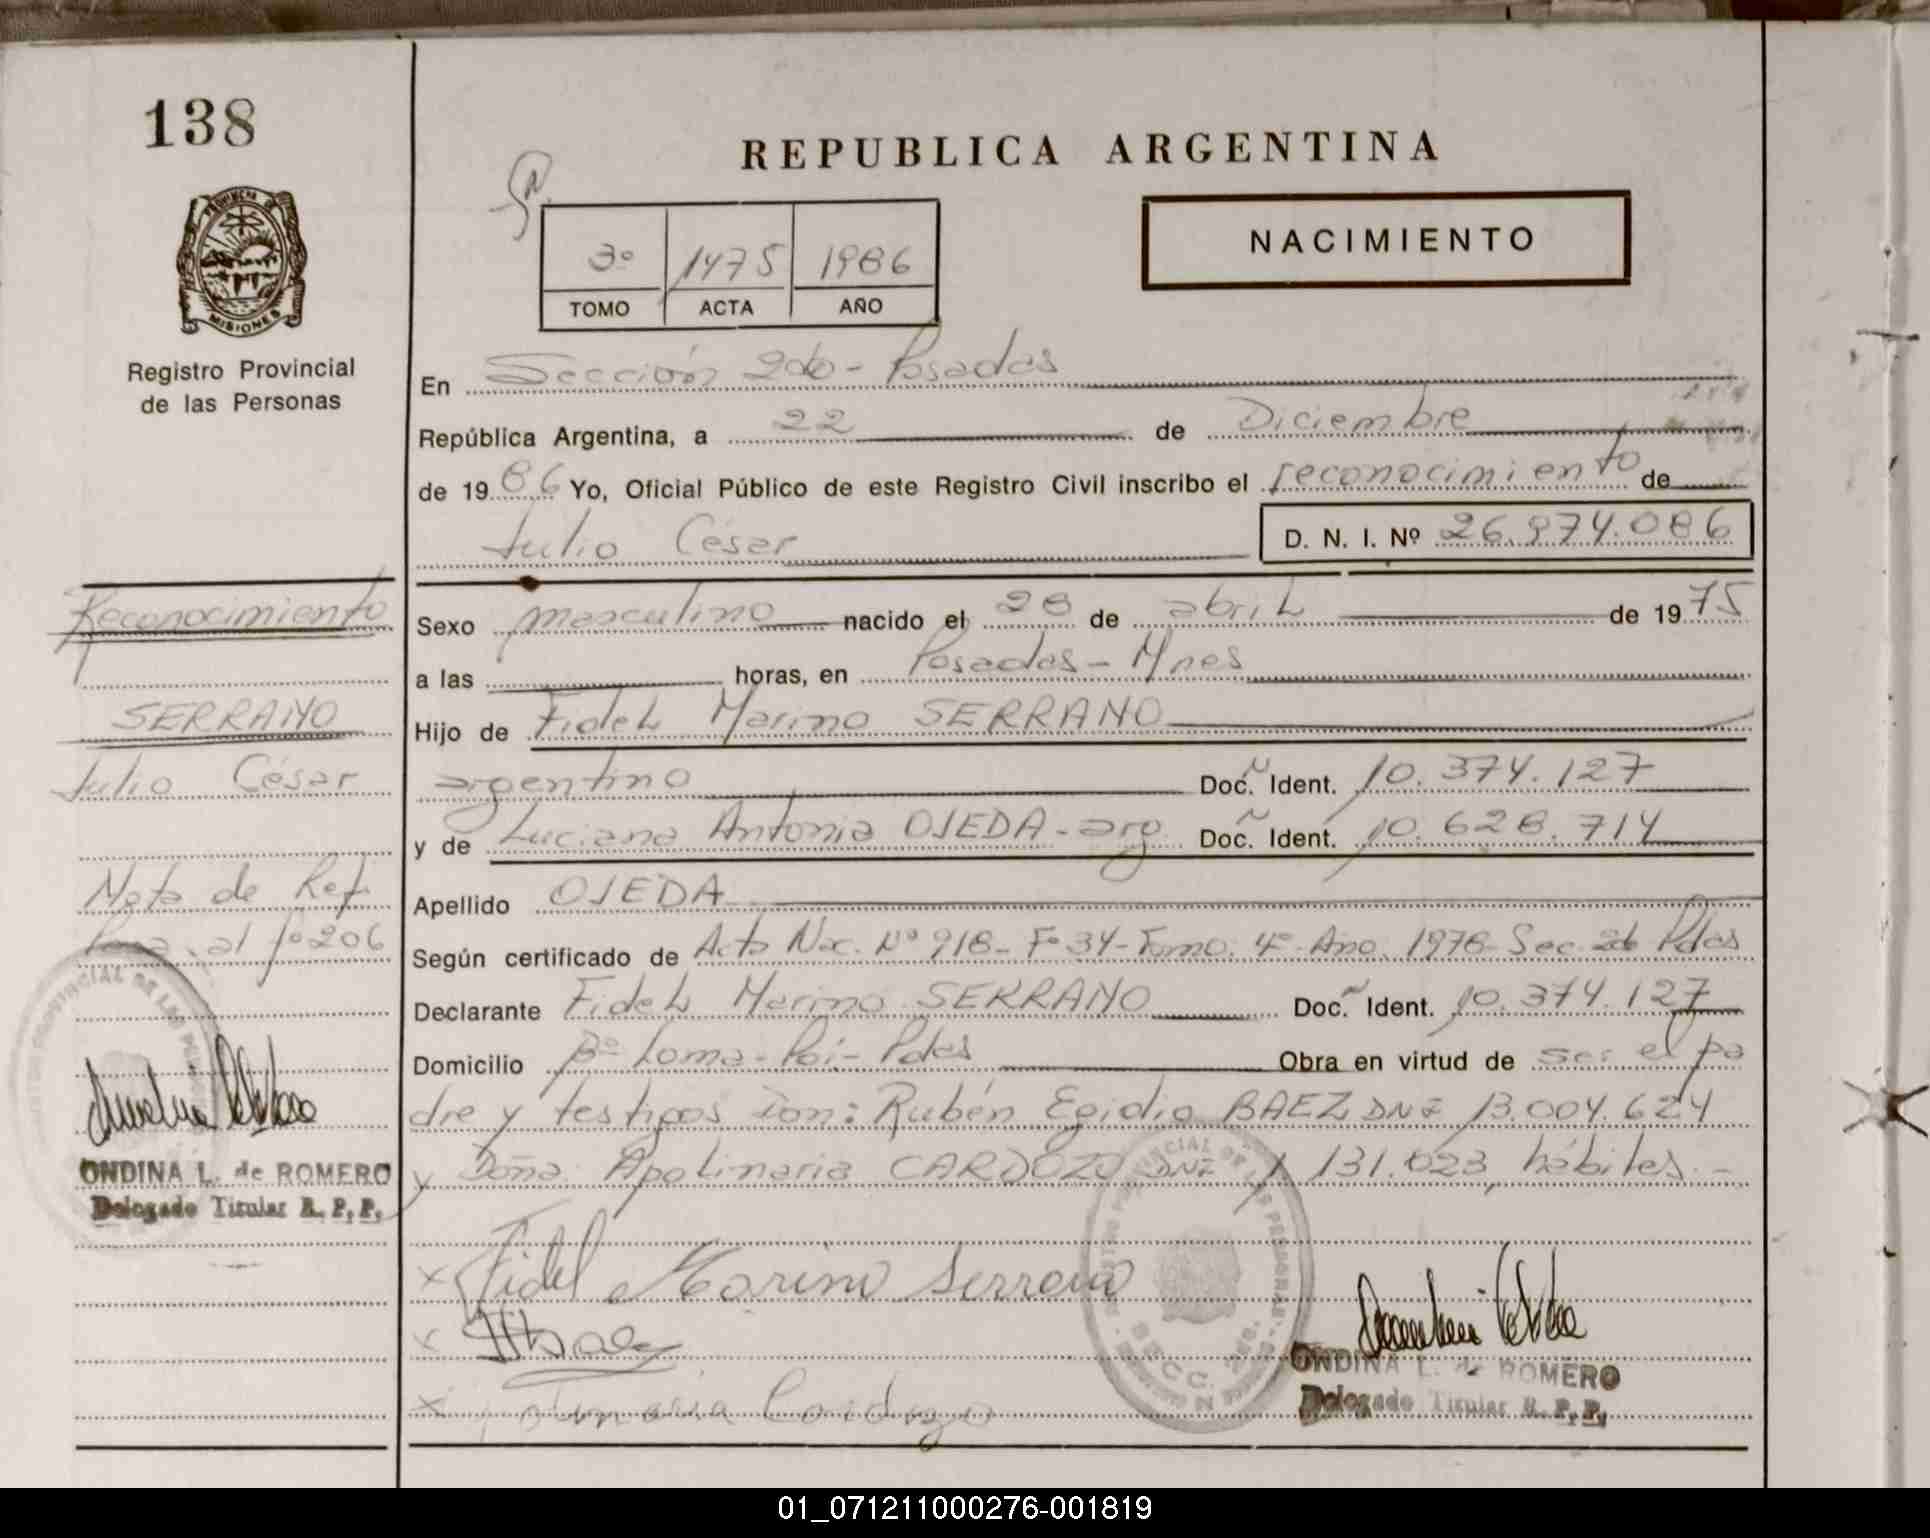 138
REPUBLICA ARGENTINA
NACIMIENTO
3º 1475 1986
TOMO ACTA AÑO
PROVINCIA DE MISIONES
Registro Provincial
de las Personas
En Sección 2da - Posadas
República Argentina, a 22 de Diciembre
de 1986 Yo, Oficial Público de este Registro Civil inscribo el reconocimiento de
Julio César D. N. I. Nº 26.974.086
Reconocimiento
SERRANO
Julio César
Nota de Ref.
Pasa al fº 206
ONDINA L. de ROMERO
Delegado Titular R. P. P.
Sexo masculino nacido el 28 de abril de 1975
a las horas, en Posadas - Mnes
Hijo de Fidel Marino SERRANO
argentino Doc. Ident. 10.374.127
y de Luciana Antonia OJEDA - arg. Doc. Ident. 10.628.714
Apellido OJEDA
Según certificado de Acta Nac. Nº 918 - Fº 34 - Tomo. 4º Año. 1978 - Sec. 2da Pdas
Declarante Fidel Marino SERRANO Doc. Ident. 10.374.127
Domicilio Bº Loma - Poi - Pdas Obra en virtud de ser el pa
dre y testigos Don: Rubén Egidio BAEZ DNI 13.004.624
y Doña Apolinaria CARDOZO DNI 1.131.023, hábiles. -
x Fidel Marino Serrano
x
x Cardozo
ONDINA L. de ROMERO
Delegado Titular R. P. P.
01_071211000276-001819